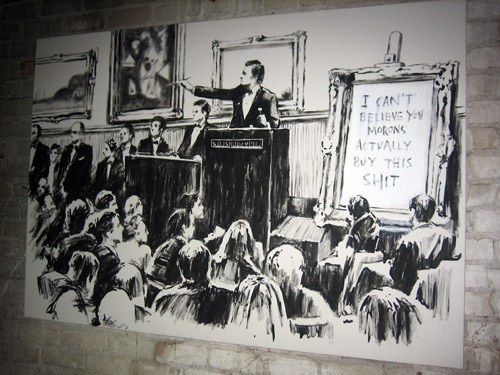 I CAN'T
BELIEVE YOU
MORONS
ACTUALLY
BUY THIS
SHIT